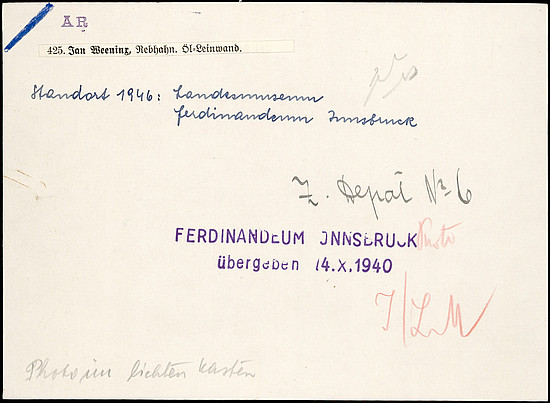 AR
425. Jan Weenix, Rebhahn. Öl-Leinwand.
Standort 1946: Landesmuseum
Ferdinandeum Innsbruck
Z. Depot No 6
FERDINANDEUM INNSBRUCK Photo
übergeben 14.X.1940
I/LM
Photo im lichten Kasten